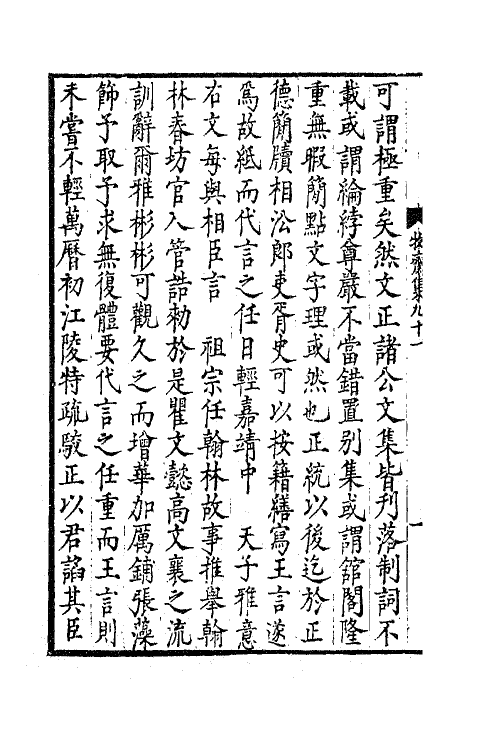 牧齋集九十一
一
可謂極重矣然文正諸公文集皆刋落制詞不
載或謂綸綍尊嚴不當錯置别集或謂舘閣隆
重無暇簡㸃文字理或然也正統以後迄於正
德簡牘相沿郎吏胥史可以按籍繕寫王言遂
爲故紙而代言之任日輕嘉靖中　天子雅意
右文每與相臣言　祖宗任翰林故事推舉翰
林春坊官入管誥勅於是瞿文懿高文襄之流
訓辭爾雅彬彬可觀久之而增華加厲鋪張藻
飾予取予求無復體要代言之任重而王言則
未嘗不輕萬曆初江陵特疏駮正以君謟其臣